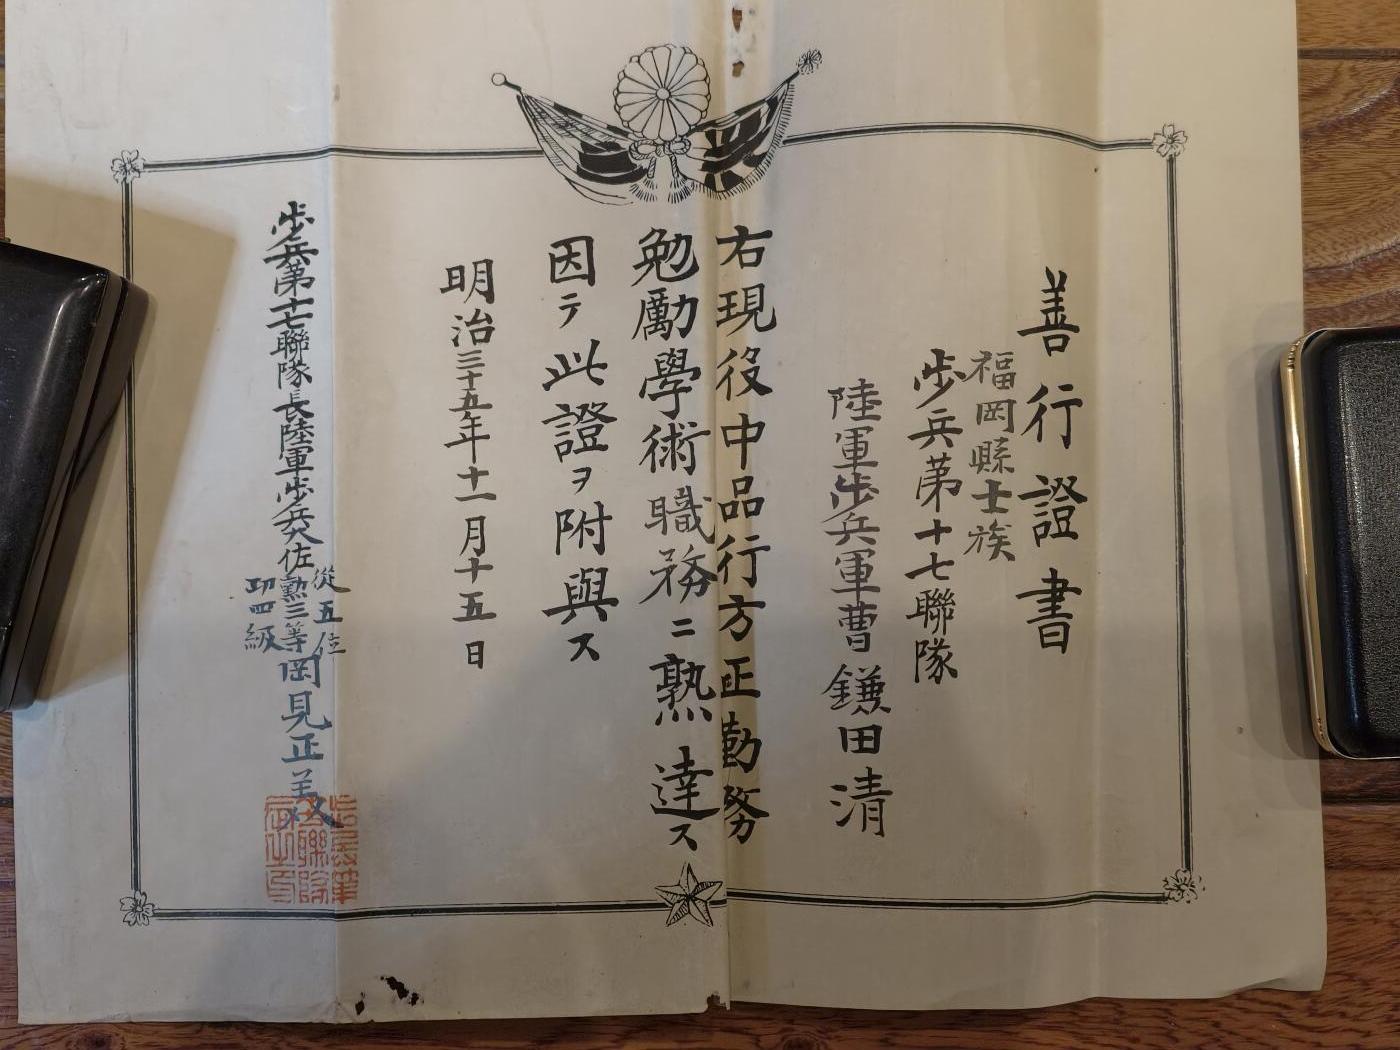 善行證書
福岡縣士族
歩兵第十七聯隊
陸軍歩兵軍曹鎌田清
右現役中品行方正勤務
勉勵學術職務ニ熟達ス
因テ此證ヲ附與ス
明治三十五年十一月十五日
歩兵第十七聯隊長陸軍歩兵大佐
從五位
勲三等
功四級
岡見正美